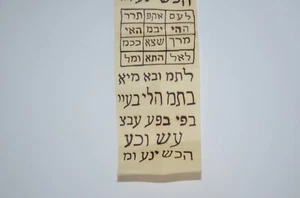 לעם אקפ תרר
ההי יבמ האי
מרך שצא ככמ
לאל התא ומל
לתמ ובא מיא
בתמ הלי בעוי
בפי בפע עבצ
עש וכע
הכש ינע ומ